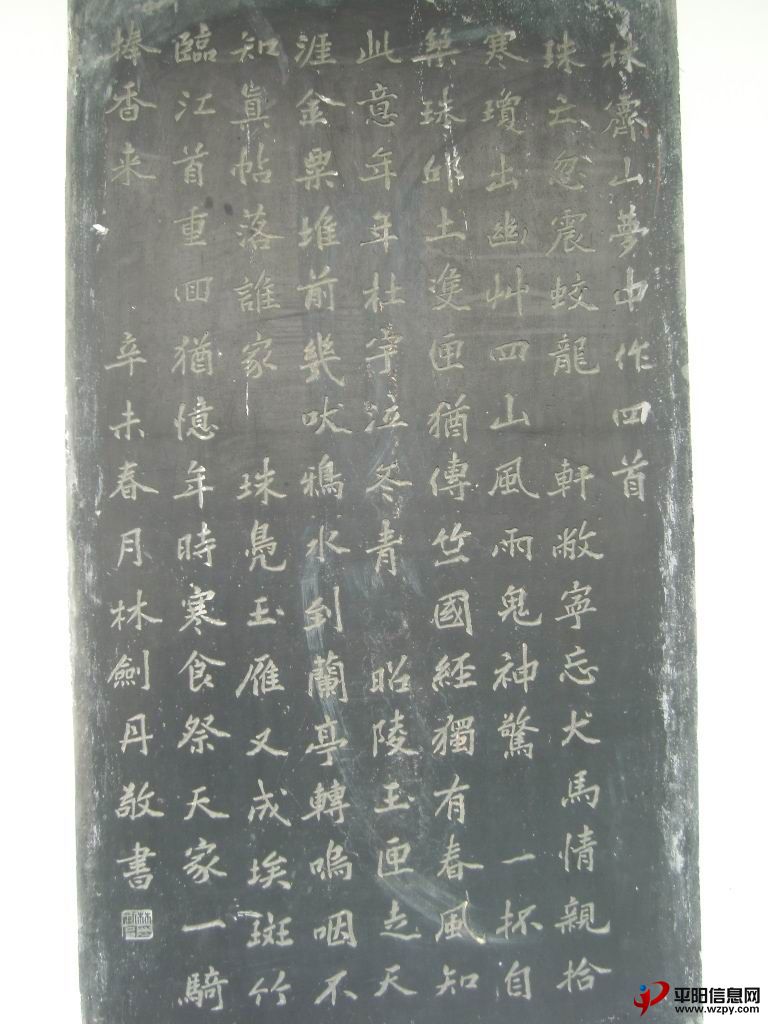 林霽山夢中作四首
珠亡忽震蛟龍 軒敝寧忘犬馬情親拾
寒瓊出幽艸四山風雨鬼神驚 一抔自
築珠邱土雙匣猶傳竺國經獨有春風知
此意年年杜宇泣冬青 昭陵玉匣走天
涯金粟堆前幾吠鴉水到蘭亭轉嗚咽不
知眞帖落誰家 珠鳧玉雁又成埃斑竹
臨江首重囬猶憶年時寒食祭天家一騎
捧香来 辛未春月林劍丹敬書
平阳信息网
www.wzpy.com